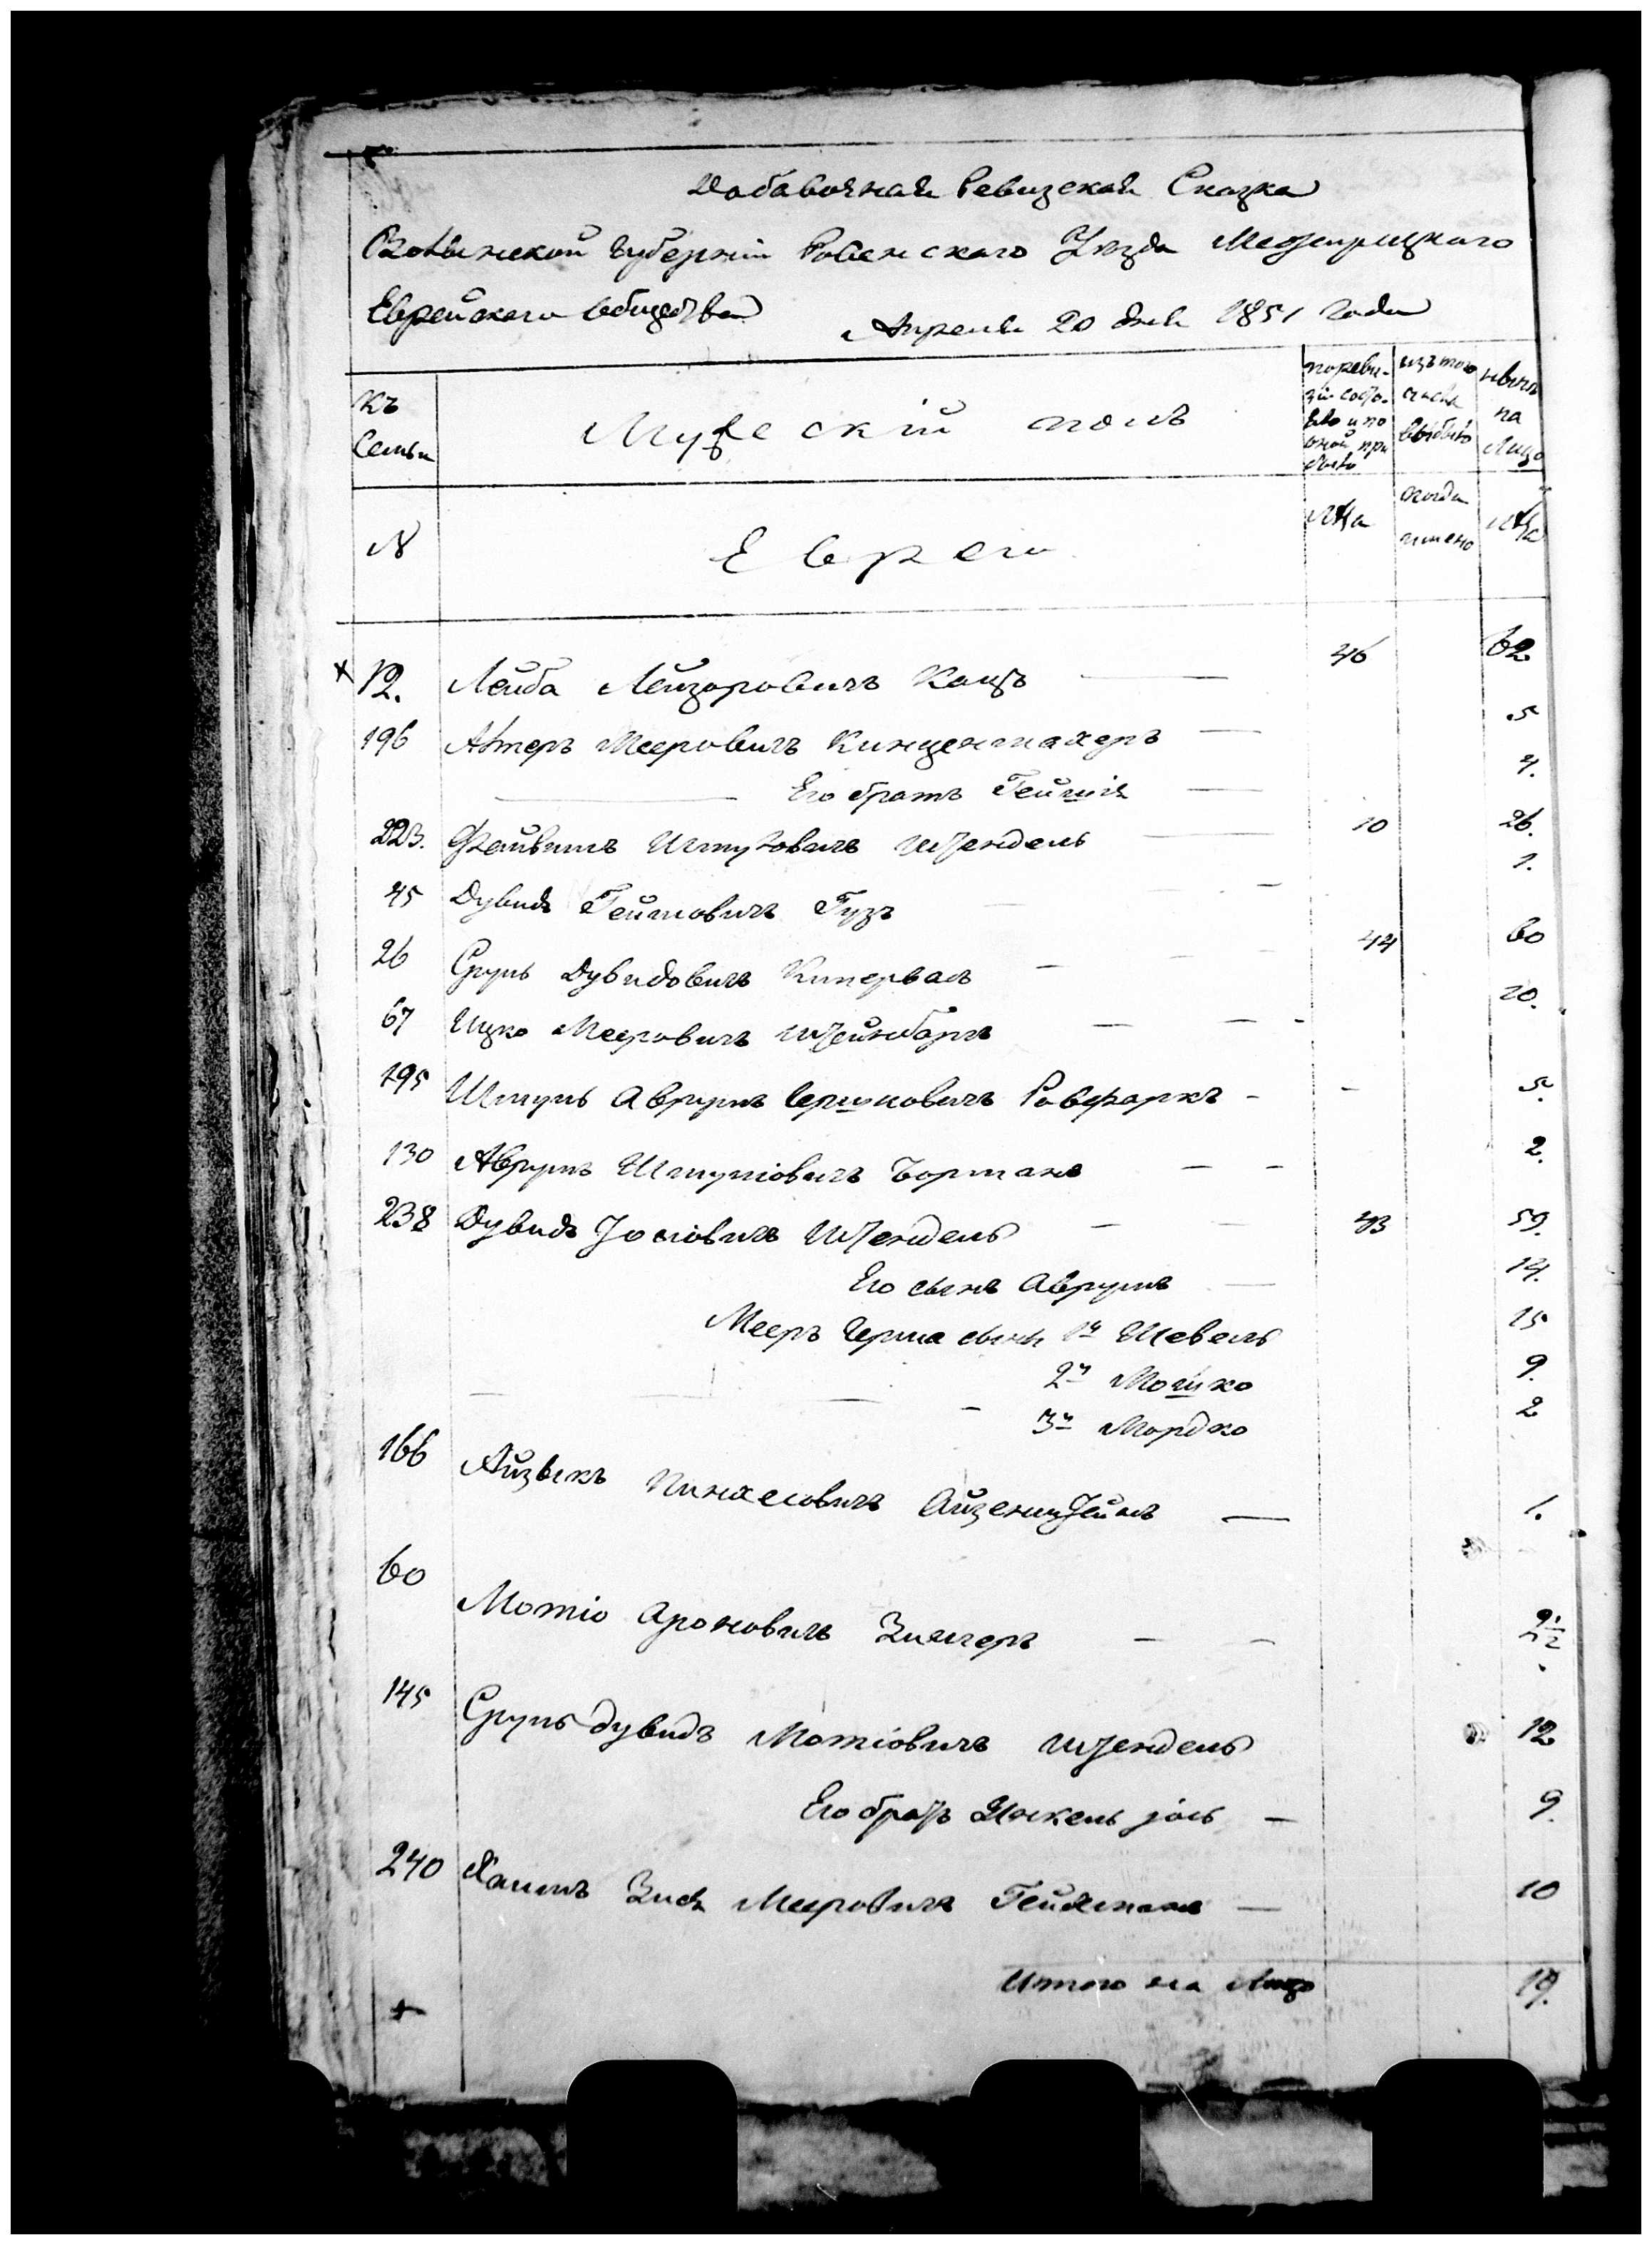 Добавочная Ревизская Сказка
Волынской Губерніи Ровенскаго Уѣзда Межирицкаго
Еврейскаго Общества Апреля 20 дня 1851 года
Къ Семьи
Мужескій полъ
по ревизіи состояло и по оной прибыло
изъ того числа выбыло
нынѣ на Лицо
№ Евреи Лѣта когда имено Лѣта
12. Лейба Лейзоровичъ Кацъ — 46 62
196 Алтеръ Мееровичъ Кинценмахеръ — 5
Его братъ Гейшія — 4.
223. Файвишъ Шмулёвичъ Штендель — 10 26.
45 Дувидъ Геймовичъ Гузъ — 1.
26 Сруль Дувидовичъ Кипервасъ — 44 60
67 Ицко Мееровичъ Штейнбаргъ — 20.
195 Шмуль Аврумъ Гершковичъ Ровфаркъ - 5.
130 Аврумъ Шмулiовичъ Борманъ — 2.
238 Дувидъ Іосiовичъ Штендель — 43 59.
Его сынъ Аврумъ — 14.
Мееръ Герша сынъ 1й Шевель 15
2й Мошко 9.
3й Мордко 2
166 Айзыкъ Пинхесовичъ Айзенштейнъ — 1.
60 Мотіо Ароновичъ Зингеръ —
145 Сруль Дувидъ Мотіовичъ Штендель 12
Его братъ Хаскель Іось — 9.
240 Хаимъ Зися Мееровичъ Гейхманъ — 10
Итого на Лицо 19.